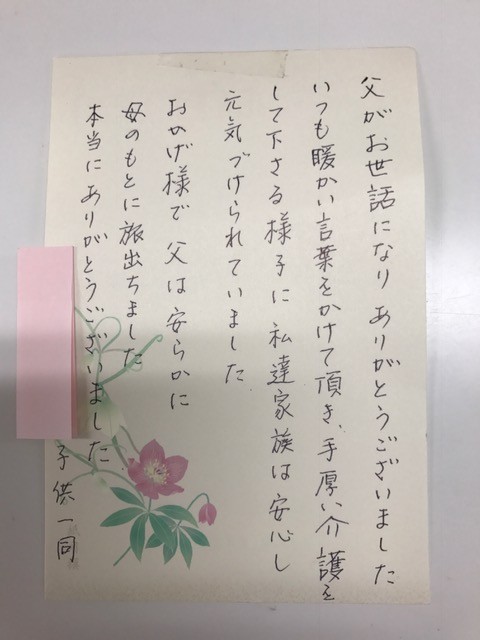 父がお世話になり ありがとうございました
いつも暖かい言葉をかけて頂き、手厚い介護を
して下さる様子に 私達家族は安心し
元気づけられていました
おかげ様で 父は安らかに
母のもとに旅出ちました
本当にありがとうございました
子供一同